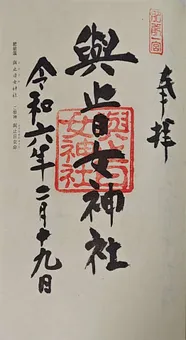 奉拝
與止日女神社
與止日
女神社
令和六年二月十九日